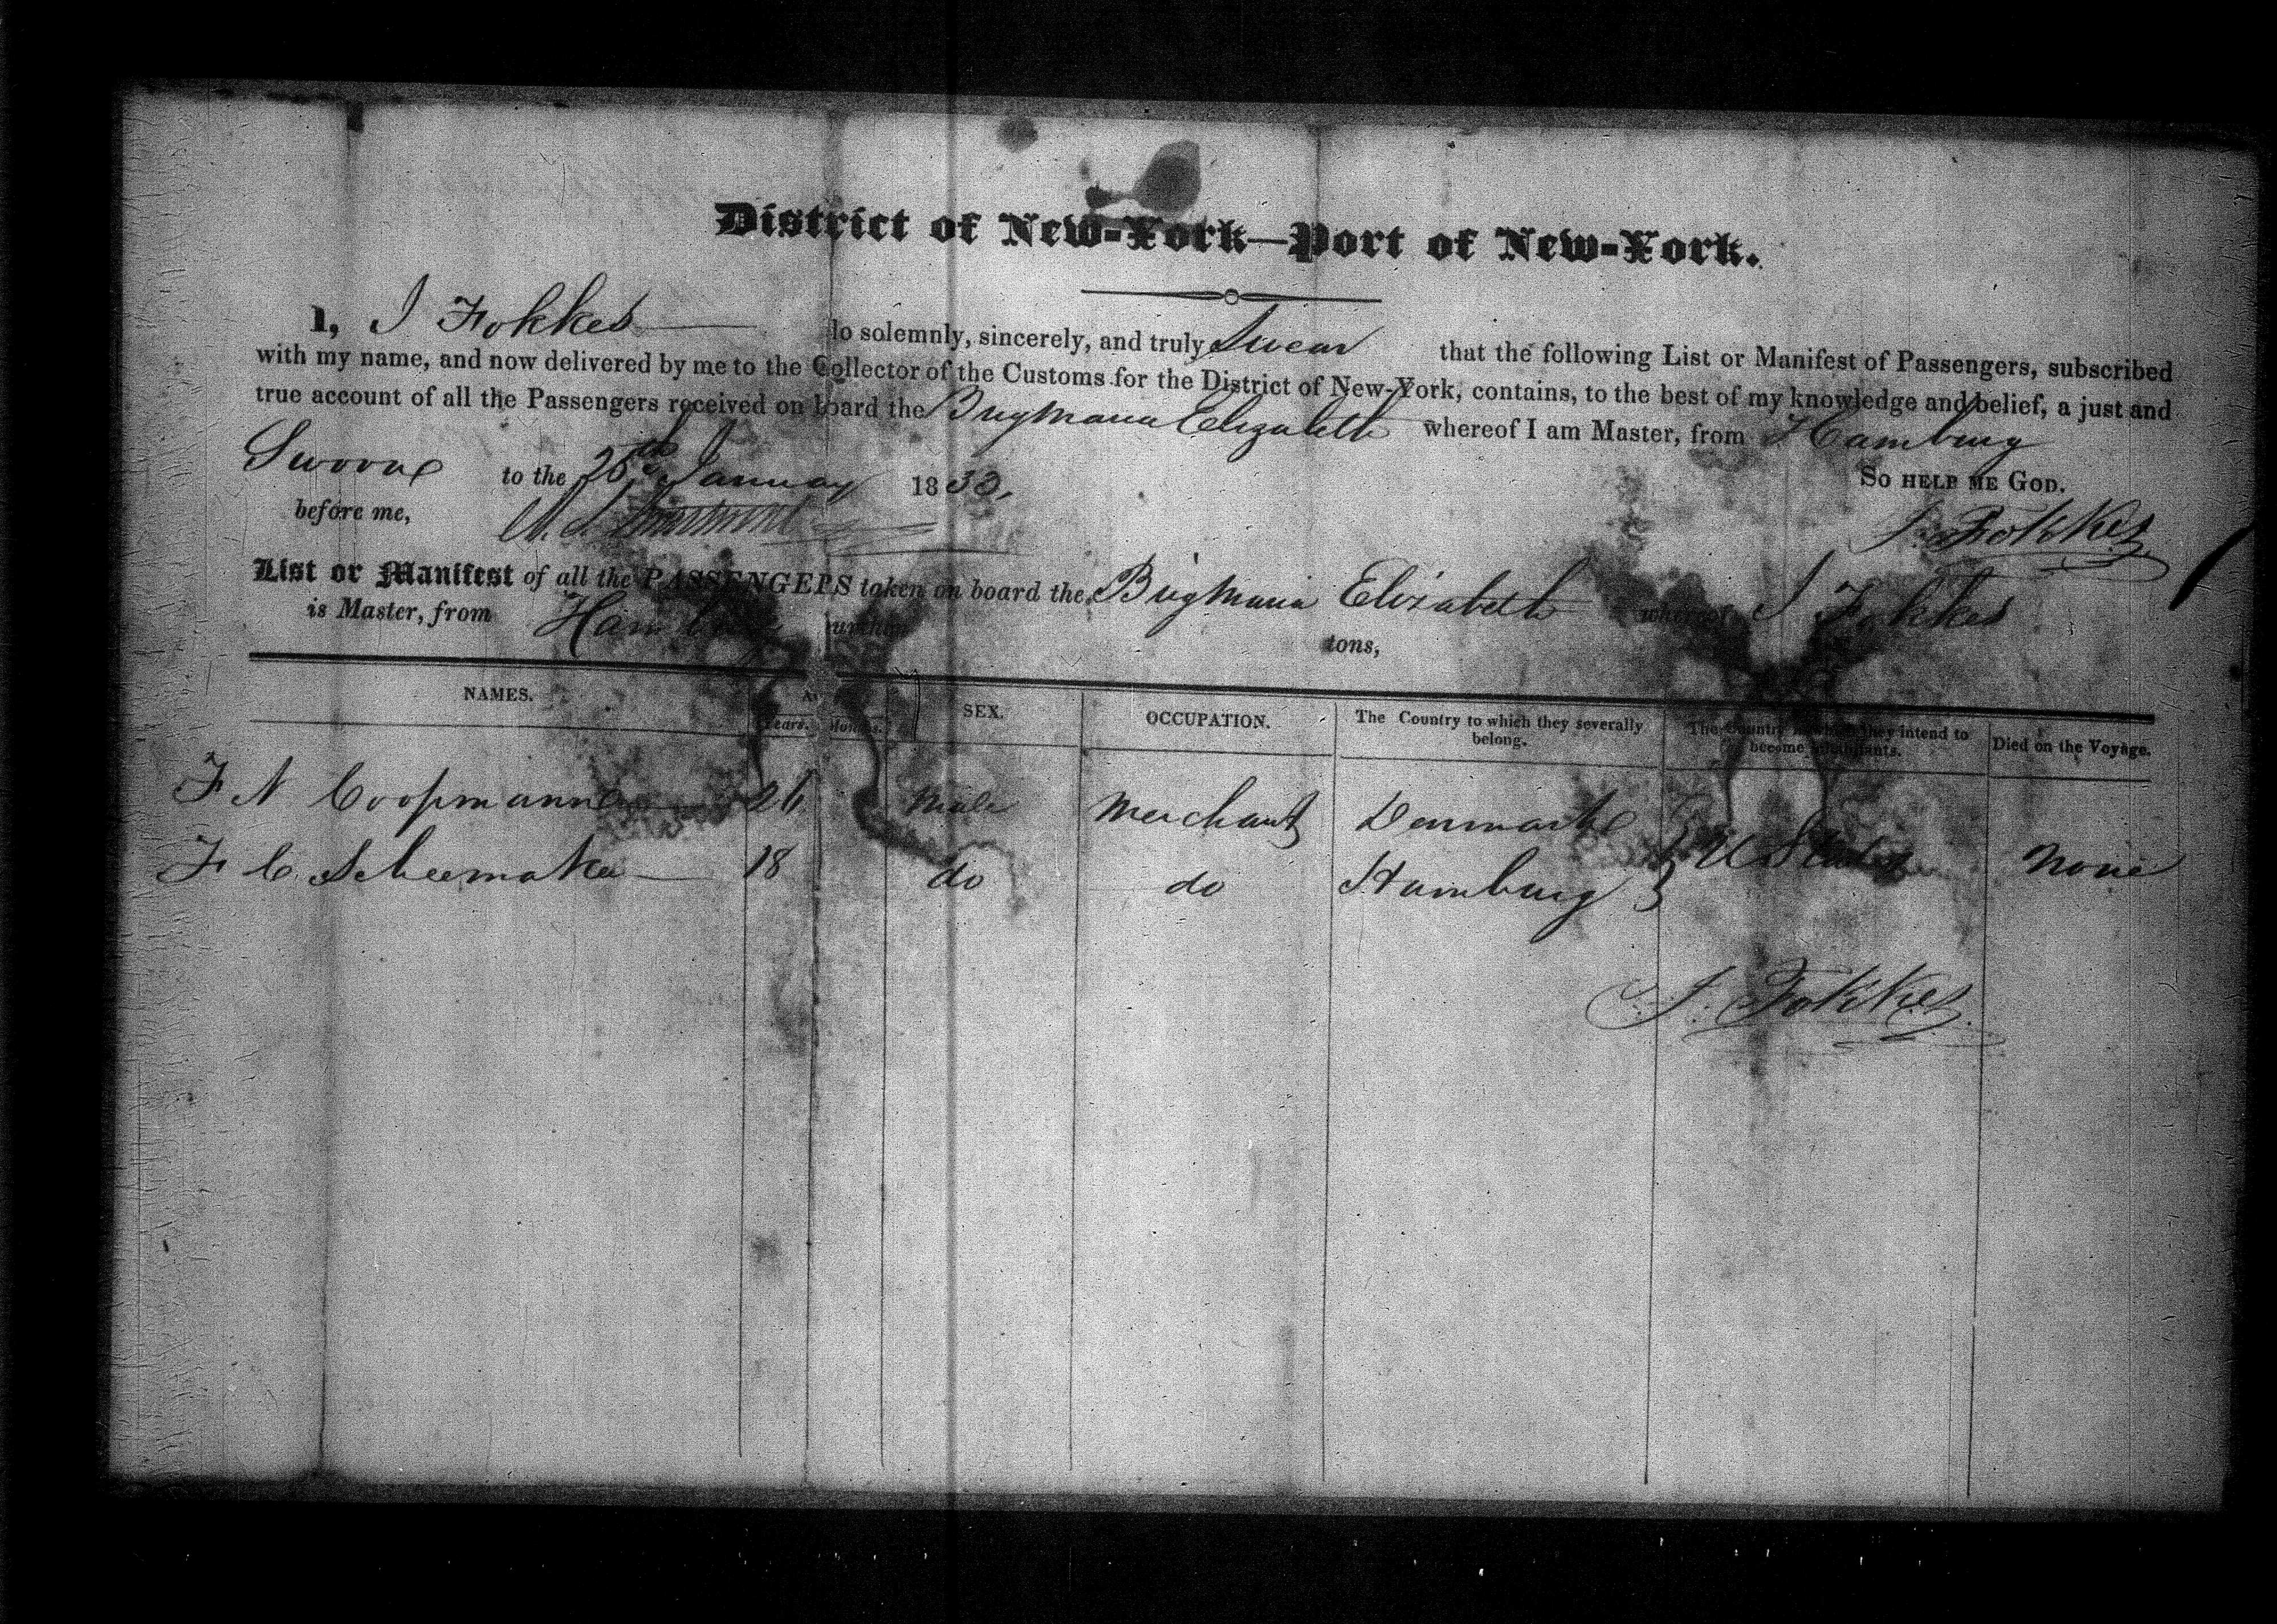 District of New-York—Port of New-York.
I, J Fokkes do solemnly, sincerely, and truly Swear that the following List or Manifest of Passengers, subscribed
with my name, and now delivered by me to the Collector of the Customs for the District of New-York, contains, to the best of my knowledge and belief, a just and
true account of all the Passengers received on board the Brig Maria Elizabeth whereof I am Master, from Hamburg
Sworne to the 25th January 183 So HELP ME GOD.
before me,
J. Fokkes
List or Manifest of all the PASSENGERS taken on board the Brig Maria Elizabeth whereof J Fokkes
is Master, from Hamburg burthen tons,
NAMES. AGE SEX. OCCUPATION. The Country to which they severally belong. The Country in which they intend to become inhabitants. Died on the Voyage.
Years. Months.
F N Coopmann 26 Male Merchant Denmark
F C Scheemaker 18 do do Hamburg } U States None
J. Fokkes